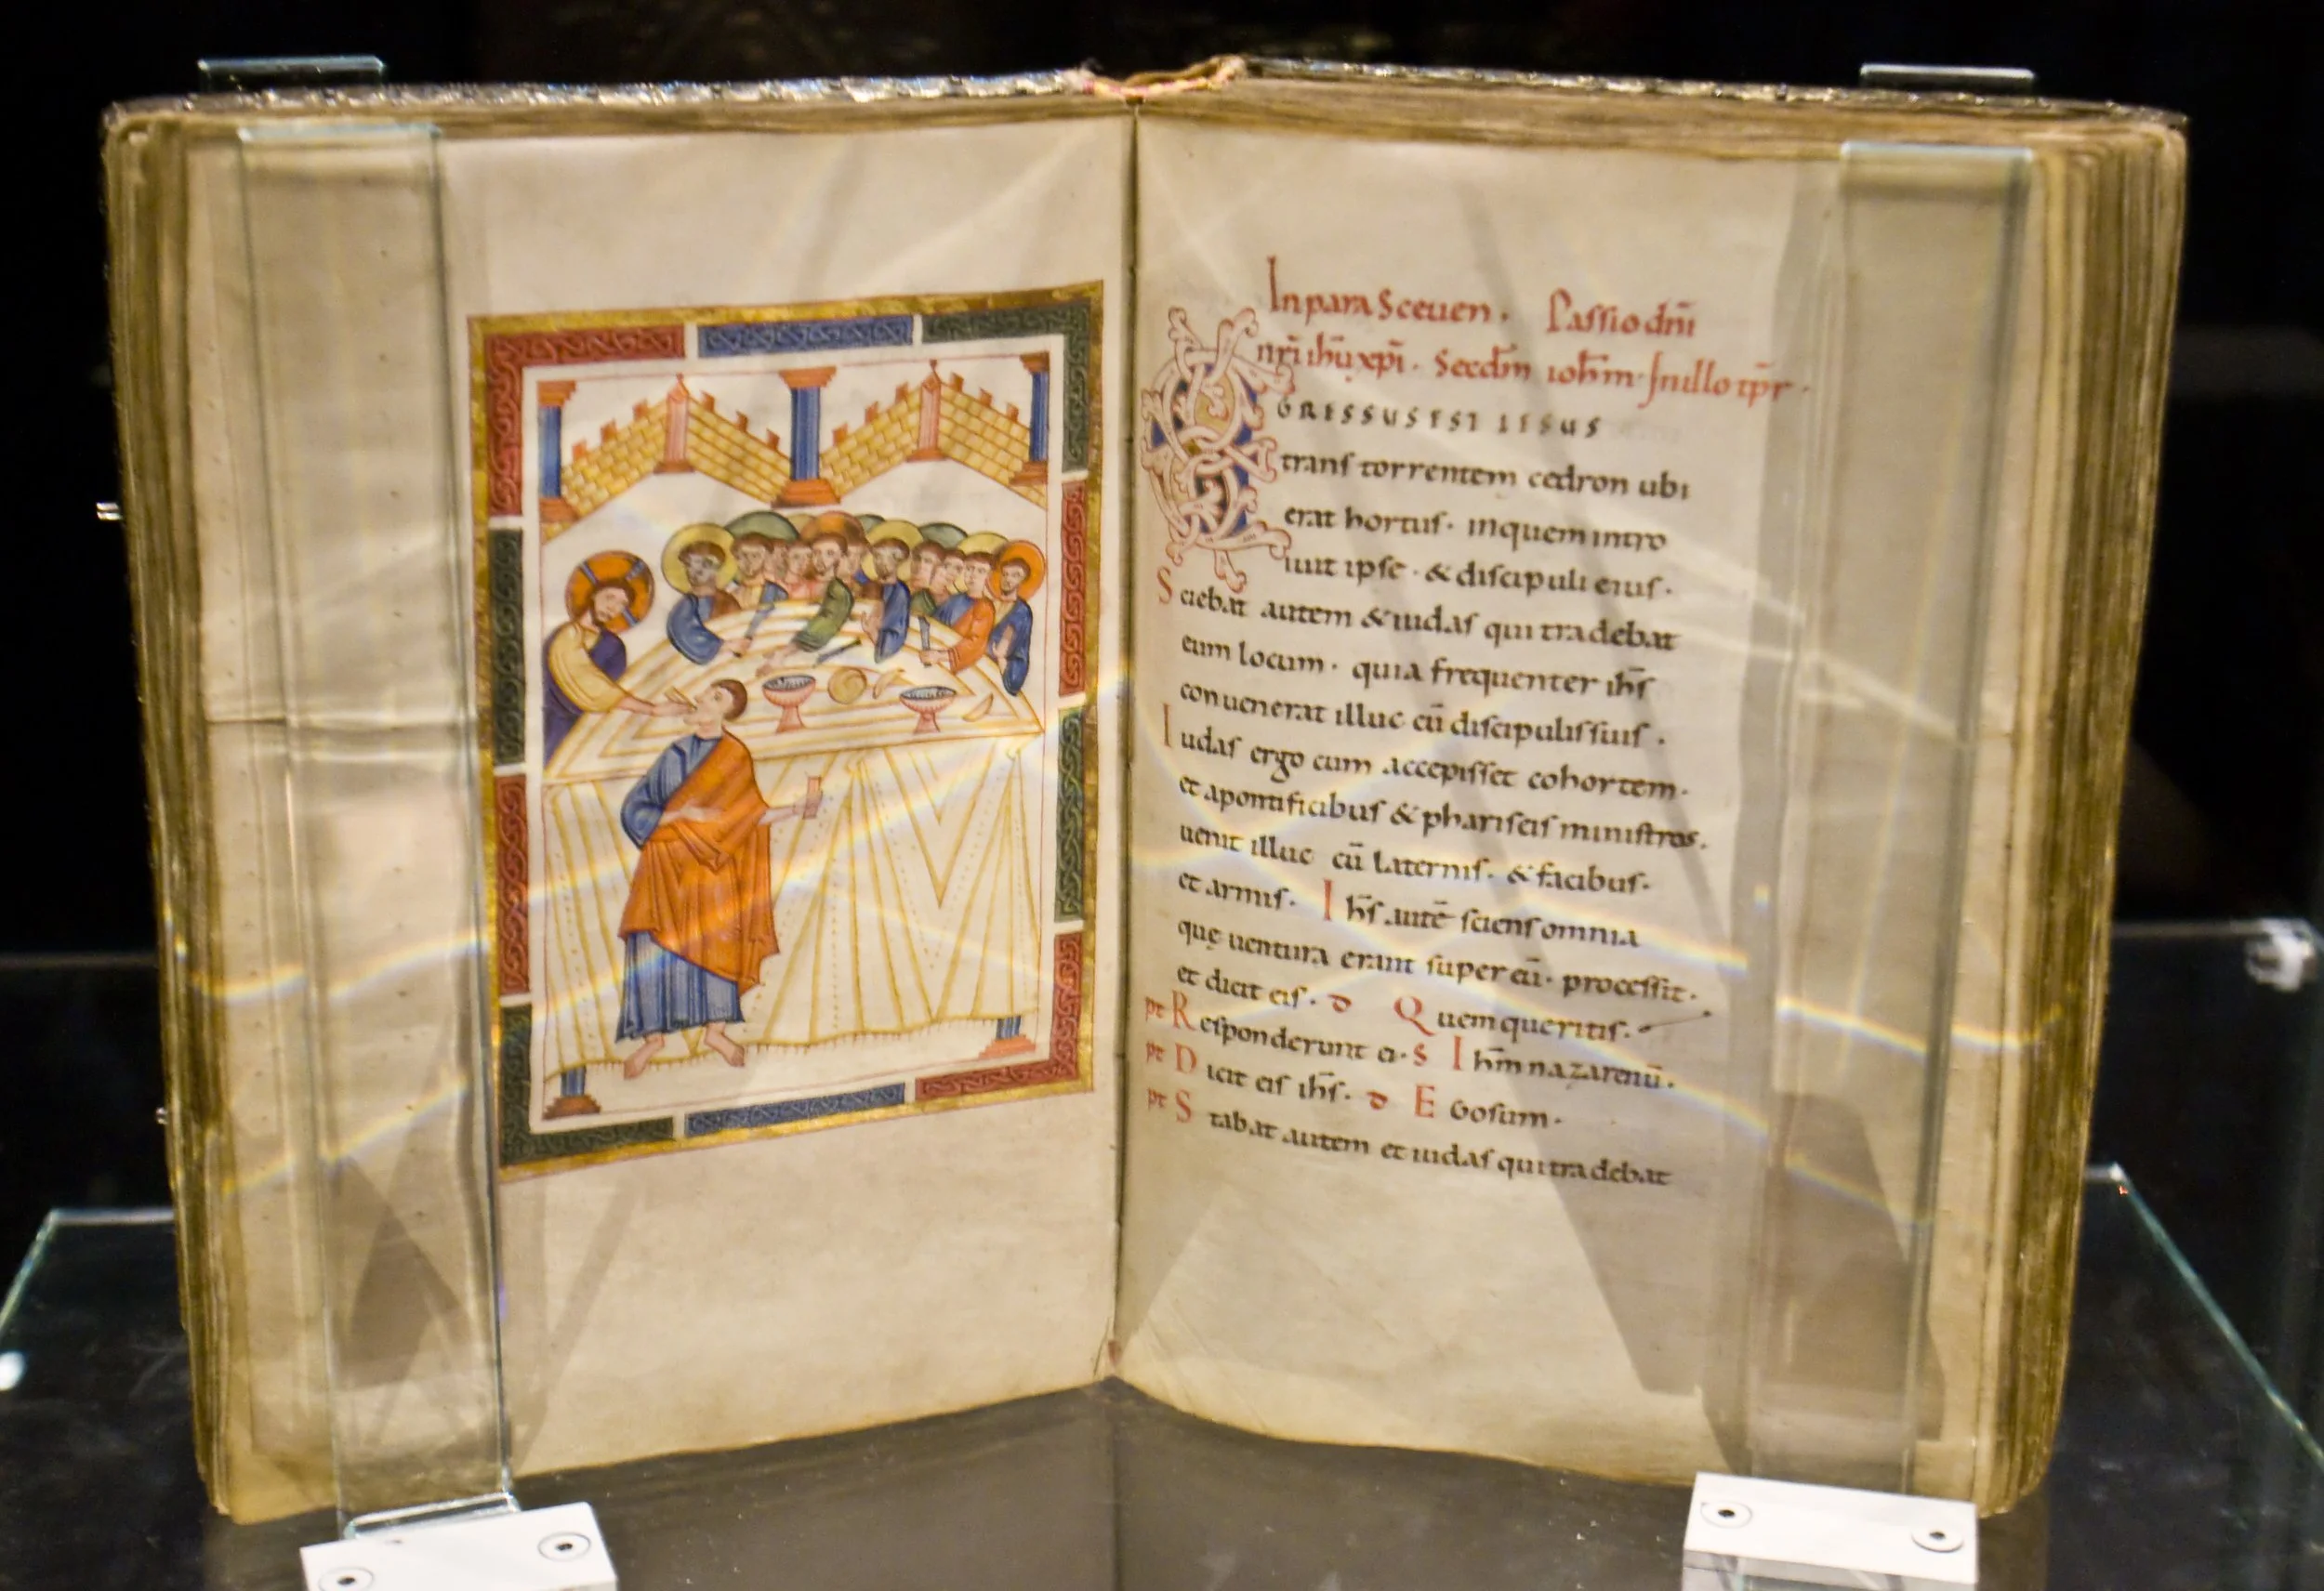 In parasceuen. Passio dn̄i
nr̄i ih̄u xp̄i. Secdm̄ ioh̄m. In illo tp̄r.
EGRESSUS EST IESUS
trans torrentem cedron ubi
erat hortus. in quem intro
iuit ipse. & discipuli eius.
Sciebat autem & iudas qui tradebat
eum locum. quia frequenter ih̄s
conuenerat illuc cū discipulis suis.
Iudas ergo cum accepisset cohortem.
et a pontificibus & phariseis ministros.
uenit illuc cū laternis. & facibus.
et armis. Ih̄s autē sciens omnia
quę uentura erant super eū. processit.
et dicit eis. d Quem queritis.
pt Responderunt ei. s Ih̄m nazarenū.
pt Dicit eis ih̄s. d Ego sum.
pt Stabat autem et iudas qui tradebat